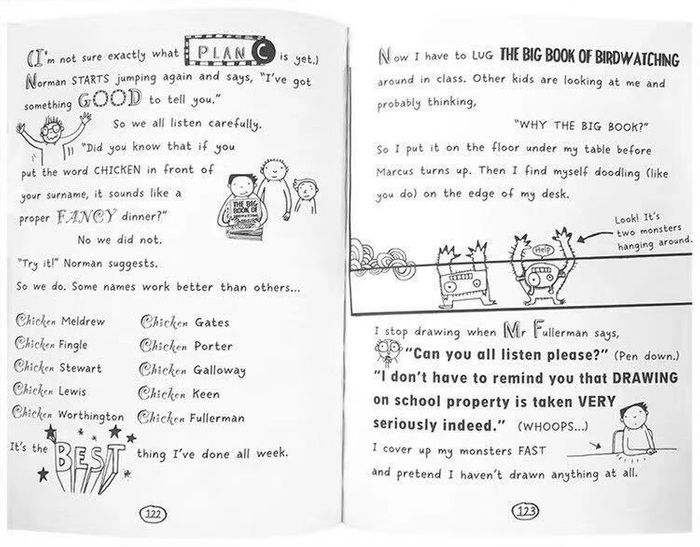 (I'm not sure exactly what PLAN C is yet.)
Norman STARTS jumping again and says, "I've got
something GOOD to tell you."
So we all listen carefully.
"Did you know that if you
put the word CHICKEN in front of
your surname, it sounds like a
proper FANCY dinner?"
THE BIG
BOOK OF
No we did not.
"Try it!" Norman suggests.
So we do. Some names work better than others...
Chicken Meldrew
Chicken Fingle
Chicken Stewart
Chicken Lewis
Chicken Worthington
Chicken Gates
Chicken Porter
Chicken Galloway
Chicken Keen
Chicken Fullerman
It's the BEST thing I've done all week.
122
Now I have to LUG THE BIG BOOK OF BIRDWATCHING
around in class. Other kids are looking at me and
probably thinking,
"WHY THE BIG BOOK?"
So I put it on the floor under my table before
Marcus turns up. Then I find myself doodling (like
you do) on the edge of my desk.
Look! It's
two monsters
hanging around.
Help
I stop drawing when Mr Fullerman says,
"Can you all listen please?" (Pen down.)
"I don't have to remind you that DRAWING
on school property is taken VERY
seriously indeed." (WHOOPS...)
I cover up my monsters FAST
and pretend I haven't drawn anything at all.
123